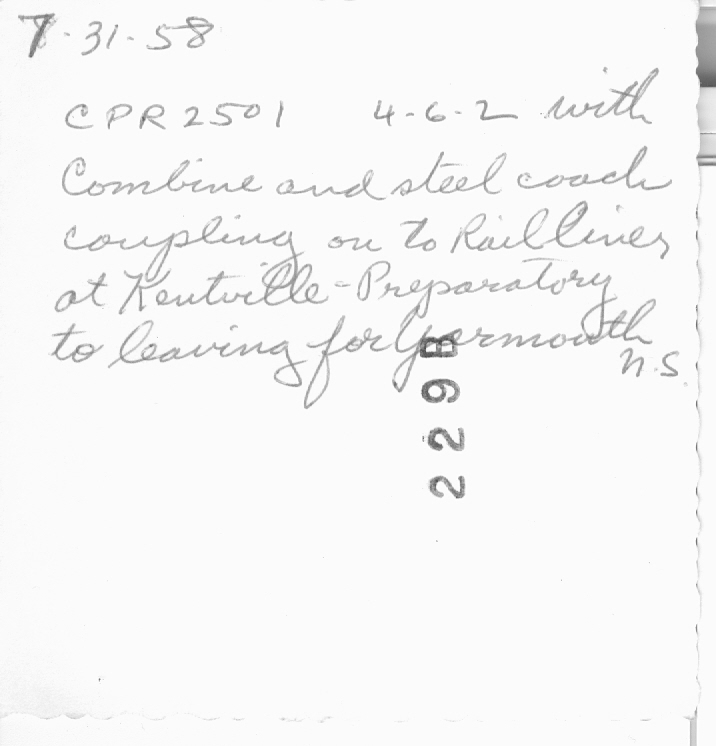 7-31-58
CPR 2501 4-6-2 with
Combine and steel coach
coupling on to Railliner
at Kentville - Preparatory
to leaving for Yarmouth
N.S.
229B